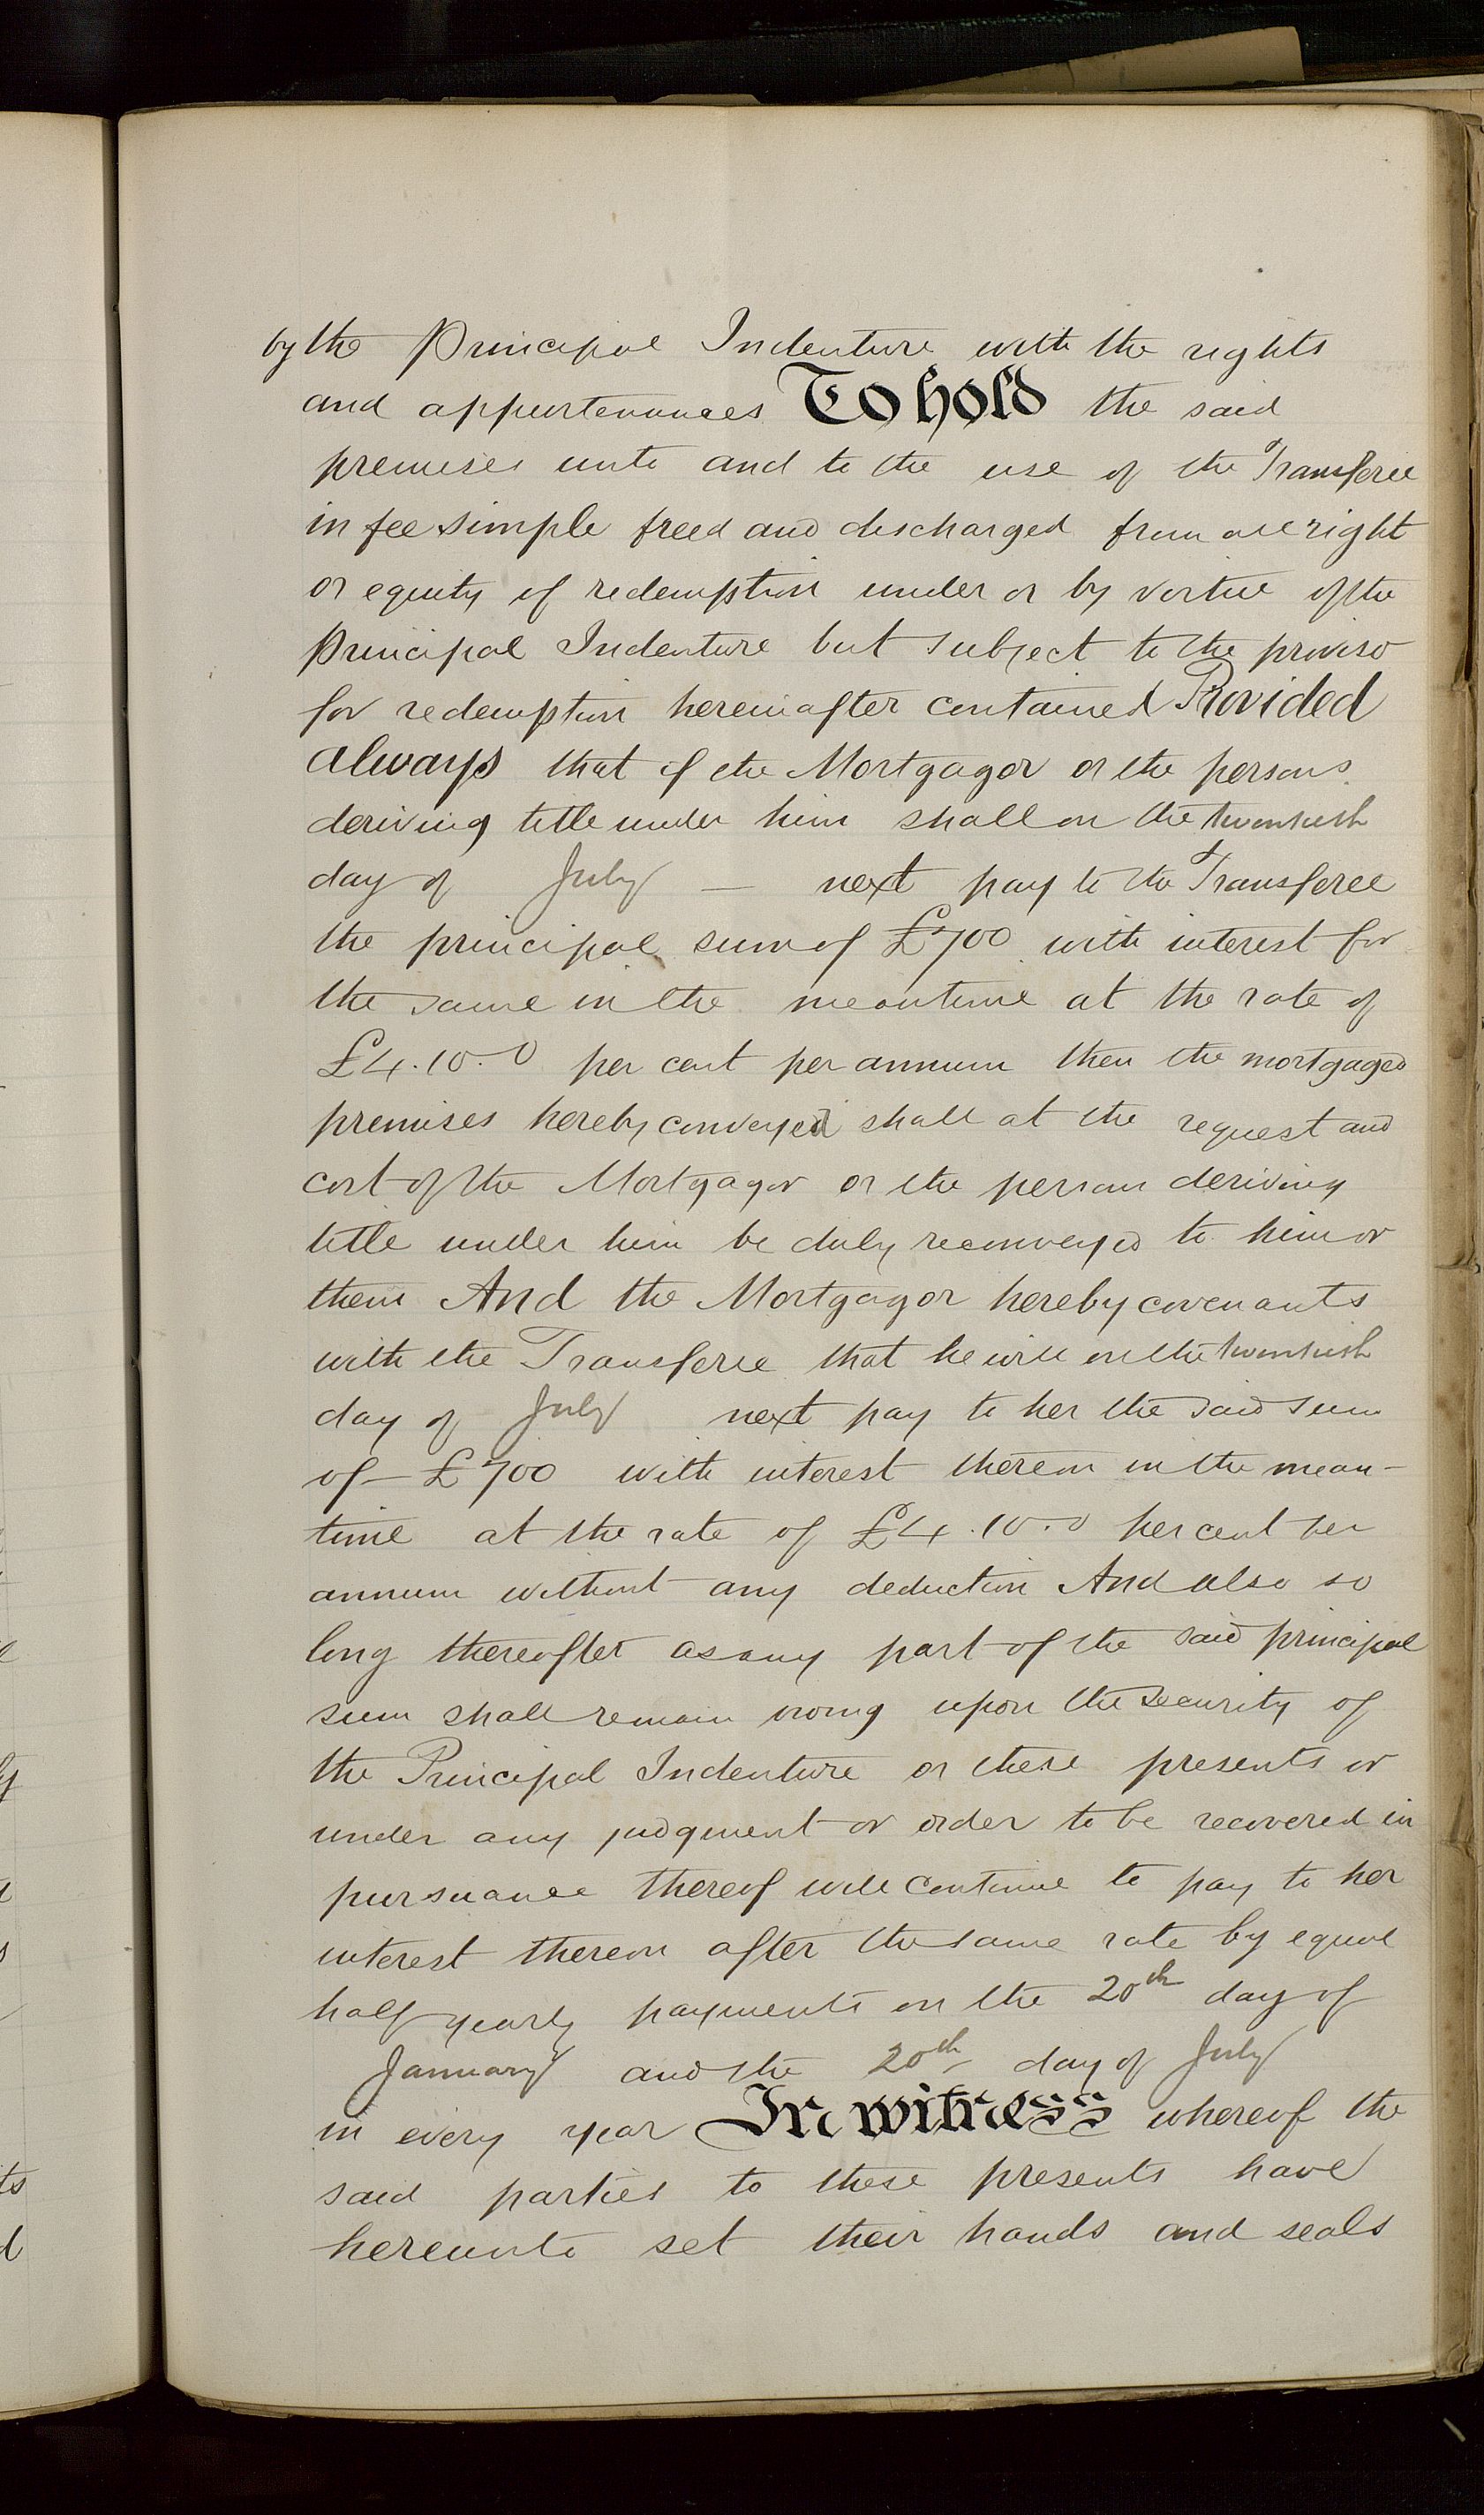 by the Principal Indenture with the rights
and appurtenances To hold the said
premises unto and to the use of the Transferee
in fee simple freed and discharged from all right
or equity of redemption under or by virtue of the
Principal Indenture but subject to the proviso
for redemption hereinafter contained Provided
always that if the Mortgagor or the persons
deriving title under him shall on the twentieth
day of July — next pay to the Transferee
the principal sum of £700 with interest for
the same in the meantime at the rate of
£4.10.0 per cent per annum then the mortgaged
premises hereby conveyed shall at the request and
cost of the Mortgagor or the person deriving
title under him be duly reconveyed to him or
them And the Mortgagor hereby covenants
with the Transferee that he will on the twentieth
day of July next pay to her the said sum
of £700 with interest thereon in the mean-
time at the rate of £4.10.0 per cent per
annum without any deduction And also so
long thereafter as any part of the said principal
sum shall remain owing upon the security of
the Principal Indenture or these presents or
under any judgment or order to be recovered in
pursuance thereof will continue to pay to her
interest thereon after the same rate by equal
half yearly payments on the 20th day of
January and the 20th day of July
in every year In witness whereof the
said parties to these presents have
hereunto set their hands and seals